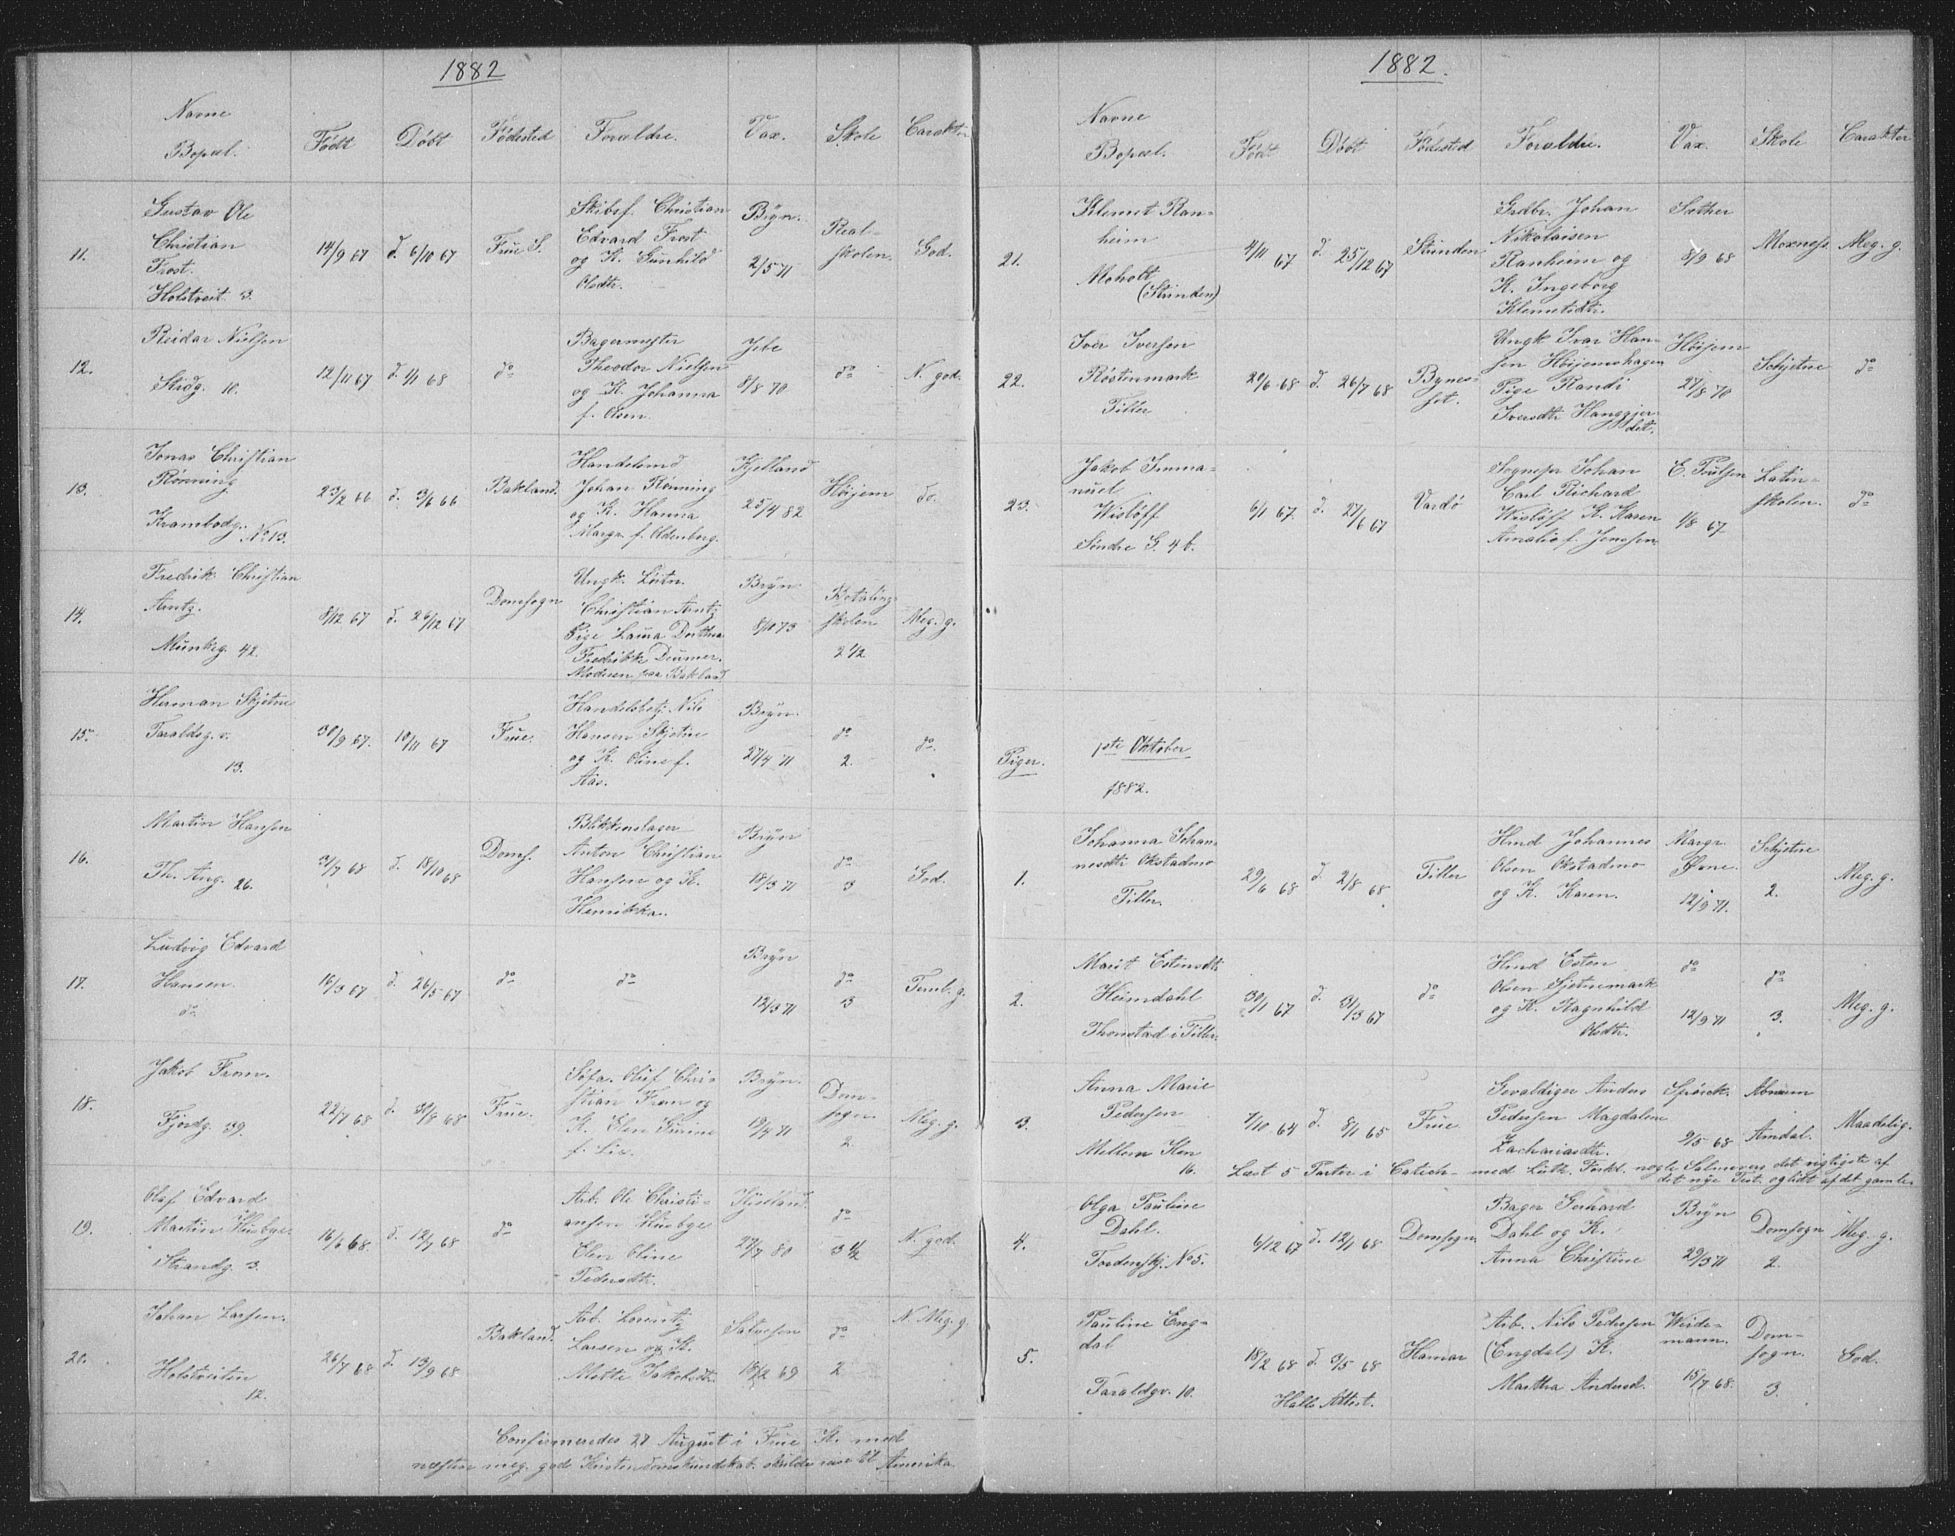 1882
Navne
Bopæl.
Født
Døbt
Fødested
Forældre.
Vax.
Skole
Carakter
11.
Gustav Ole
Christian
Frost.
Holstveit. 3.
14/9 67
d. 6/10 67
Frue S.
Skibsf. Christian
Edvard Frost
og K. Gunhild
Olsdtr.
Bryn.
2/5 71
Real-
skolen.
God.
12.
Reidar Nielsen
10.
12/11 67
d. 1/1 68
do
Bagermester
Theodor Nielsen
og K. Johanna
f. Olsen.
8/8 70
do
N. god.
13.
Jonas Christian
Rønning
Krambodg. No 13.
23/2 66
d. 3/6 66
Bakland.
Handelsmd
Johan Rønning
og K. Hanna
Margr. f. Oldenberg.
Kjelland
25/4 82
Høijem
do.
14.
Fredrik Christian
Arntz.
Munkeg. 42.
8/12 67
d. 26/12 67
Domsogn
Ungk. Løitn.
Christian Arntz
Pige Laura Dorthea
Fredrikke Deumer.
Moderen paa Bakland
Bryn
8/10 73
Betaling
skolen
2 1/2
Meg. g.
15.
Herman Skjetne
Taraldsg. v.
13.
30/9 67.
10/11 67
Frue.
Handelsbetj. Nils
Hansen Skjetne
og K. Oline f.
Aas.
Bryn.
27/4 71
do
2.
do.
16.
Martin Hansen
Th. Ang. 26.
31/7 68
d. 18/10 68
Doms.
Blikkenslager
Anton Christian
Hansen og K.
Henrikka.
Bryn
18/3 71
do
3
God.
17.
Ludvig Edvard
Hansen.
do
16/3 67
d. 26/5 67
do
do
Bryn
12/3 71
do
3
Teml. g.
18.
Jakob From.
Fjordg. 39.
22/7 68
d. 31/8 68
Frue.
Søfa. Oluf Chris-
stian From og
K. Elen Gurine
f. Lie.
Bryn.
19/4 71
Dom-
sogn.
2
Meg. g.
19.
Olaf Edvard
Martin Husbye.
Strandg. 3.
16/6 68.
d. 12/7 68
do
Arb. Ole Christi-
ansen Husbye
Elen Oline
Pedersdtr.
Kjelland
27/7 80
do
3 1/2
N. god.
20.
Johan Larsen.
Holstveiten
12.
26/7 68
d. 13/9 68
Bakland.
Arb. Lorentz
Larsen og K.
Mette Jakobsdtr.
Salvesen
13/2 69
do
2
N. Meg. g.
Confirmeredes 27 August i Frue K. med
næsten meg. gode Kristendomskundskab. skulde reise til Amerika
1882.
Navne
Bopæl.
Født
Døbt
Fødested
Forældre.
Vax.
Skole
Carakter
21.
Klemet Ran-
heim
Moholt
(Strinden)
4/11 67
d. 25/12 67
Strinden
Grdbr. Johan
Nikolaisen
Ranheim og
K. Ingeborg
Klemetsdtr.
Sæther
8/9 68
Moxness.
Meg. g.
22.
Iver Iversen
Røstenmark
Tiller
20/6 68
d. 26/7 68
Bynes-
set.
Ungk Ivar Han-
sen Høijemshagen
Pige Randi
Iversdtr Hangjer-
det.
Høijem
27/8 70
Schjetne
do
23.
Jakob Imma-
nuel
Wisløff
Søndre G. 4 b.
6/1 67.
d. 27/6 67
Vardø
Sognepr Johan
Carl Richard
Wisløff K. Karen
Amalie f. Jenssen.
E. Poulsen
1/8 67
Latin-
skolen.
do
Piger.
1ste Oktober
1882.
1.
Johanna Johan-
nesdtr Okstadmo
Tiller.
29/6 68
d. 2/8 68
Tiller
Hmd Johannes
Olsen Okstadmo
og K. Karen.
Margr.
Øvne.
12/9 71.
Schjetne
2.
Meg. g.
2.
Marit Estensdtr
Heimdahl
Thonstad i Tiller.
30/1 67
d. 31/3 67
do
Hmd Esten
Olsen Sjetnemark
og K. Ragnhild
Olsdtr.
do
12/9 71
do
3.
Meg. g.
3.
Anna Marie
Pedersen
Mellem Ilen
16.
7/10 64
d. 8/1 65
Frue
Gevaldiger Anders
Pedersen Magdalene
Zachariasdtr.
Spørck.
9/5 68
Abraum
Amdal.
Maadelig.
Læst 5 Parter i Catech- med Luth. Forkl. nogle Salmevers det vigtigste af
det nye Test. og lidt af det gamle.
4.
Olga Pauline
Dahl.
Tordenskj. No 5.
6/12 67
d. 12/1 68
Domsogn.
Bager Gerhard
Dahl og K.
Anna Christine
Bryn
29/3 71
Domsogn
2.
Meg. g.
5.
Pauline Eng-
dal
Taraldgv. 10.
18/2 68
d. 3/5 68
Hamar
Halls Attest.
Arb. Nils Pedersen
(Engdal) K.
Marthea Andersd.
Weide-
mann.
15/7 68.
Dom-
sogn.
3.
God.